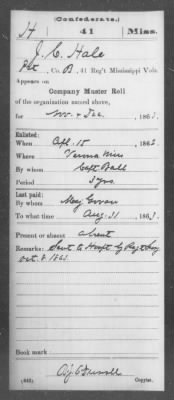 (Confederate.)
H 41 Miss.
J. C. Hale
Pvt, Co. B, 41 Reg't Mississippi Vols.
Appears on
Company Muster Roll
of the organization named above,
for Nov. & Dec., 1863.
Enlisted:
When Apl. 15, 1862.
Where
By whom Capt Ball
Period 3 yrs.
Last paid:
By whom Maj
To what time Aug. 31, 186
Present or absent absent
Remarks: Sent to Hospt. by Regt Surg
Oct. 8 1863.
Book mark:
(642) Copyist.